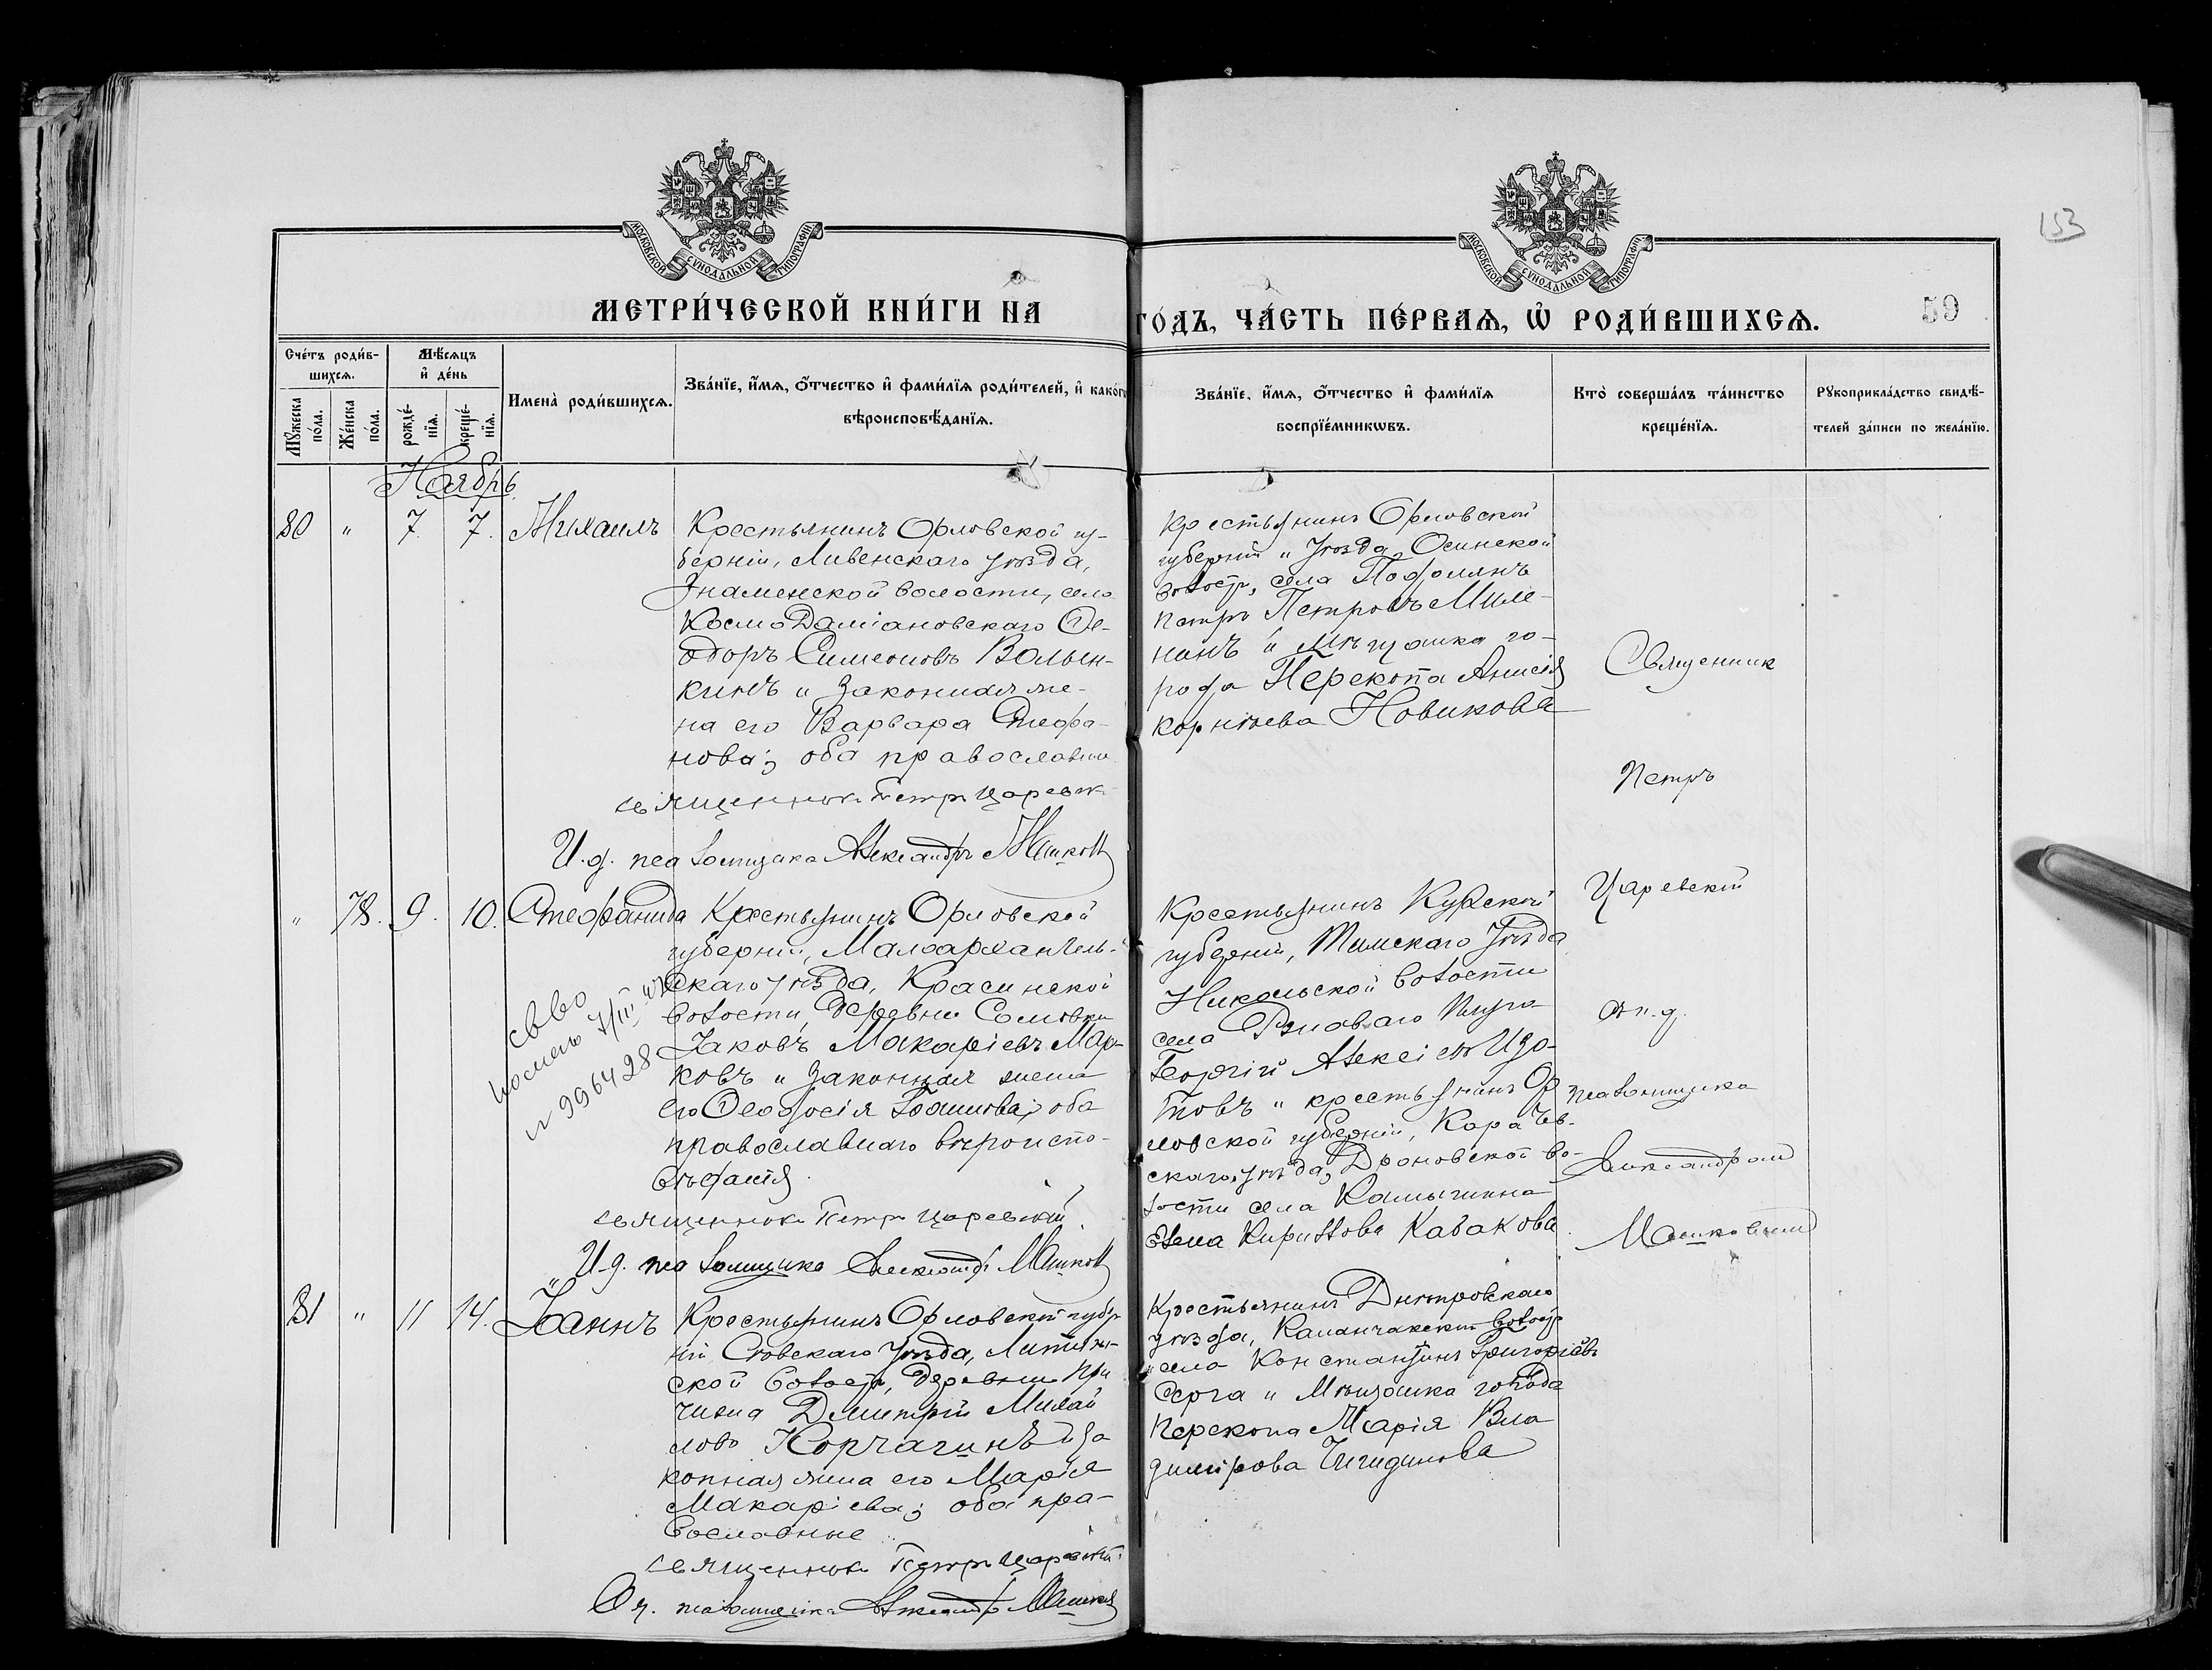 153
МОСКОВСКОЙ СУНОДАЛЬНОЙ ТИПОГРАФІИ
МОСКОВСКОЙ СУНОДАЛЬНОЙ ТИПОГРАФІИ
МЕТРИ́ЧЕСКОЙ КНИ́ГИ НА
ГО́ДЪ, ЧА́СТЬ ПЕ́РВАѦ, Ѡ҆ РОДИ́ВШИХСѦ.
59
Сче́тъ роди́в-
шихсѧ.
Мꙋ́жеска по́ла.
Же́нска по́ла.
Мѣ́сѧцъ
и҆ де́нь
рожде́-
нїѧ.
креще́-
нїѧ.
Имена̀ роди́вшихсѧ.
Зва́нїе, и҆́мѧ, ѻ҆́тчество и҆ фами́лїѧ роди́телей, и҆ како́гѡ
вѣроисповѣ́данїѧ.
Зва́нїе, и҆́мѧ, ѻ҆́тчество и҆ фами́лїѧ
воспрїе́мникѡвъ.
Кто̀ соверша́лъ та́инство
креще́нїѧ.
Рꙋкоприкла́дство свидѣ́-
телей за́писи по жела́нїю.
Ноябрь
80 " 7. 7. Михаилъ
Крестьянинъ Орловской гу-
берніи, Ливенскаго уѣзда,
Знаменской волости, села
КосмоДаміановскаго Ѳе-
одоръ Симеоновъ Волын-
кинъ и законная же-
на его Варвара Стефа-
нова; оба православные
священникъ Петръ Царевск
И. д. псаломщика Александръ Машков
Крестьянинъ Орловской
губерніи и уѣзда,
волости, села Подолянъ
Петръ Петровъ Миле-
нинъ и мѣщанка го-
рода Перекопа Анисія
Корнѣева Новикова
Священник
Петръ
Царевскій
и. д.
псаломщика
Александром
Машковым
" 78. 9. 10. Стефанида
Крестьянинъ Орловской
губерніи, Малоархангель-
скаго уѣзда,
волости, деревни
Іаковъ Макаріевъ Мар-
ковъ и законная жена
его Ѳеодосія оба
православнаго вѣроиспо-
вѣданія.
священникъ Петръ Царевскій
И. д. псаломщика Александръ Машков
св во
№ 996428
Крестьянинъ Курской
губерніи, Тимскаго уѣзда
Никольской волости
села
Георгій Алексіевъ Изо-
товъ и крестьянинъ Ор
ловской губерніи, Карачев-
скаго уѣзда, Дроновской во-
лости села
Елена Кириллова Кабакова.
81 " 11 14. Іоаннъ
Крестьянинъ Орловской губер
ніи уѣзда,
ской волости, деревни При
Димитрій Михай
ловъ Корчагинъ и за
конная жена его Марія
Макаріева; оба пра-
вославные
священникъ Петръ Царевскій
псаломщика Александръ Машков
Крестьянинъ Днѣпровскаго
уѣзда, Каланчакской волости
села Константинъ Григоріевъ
и Мѣщанка города
Перекопа Марія Вла
димірова